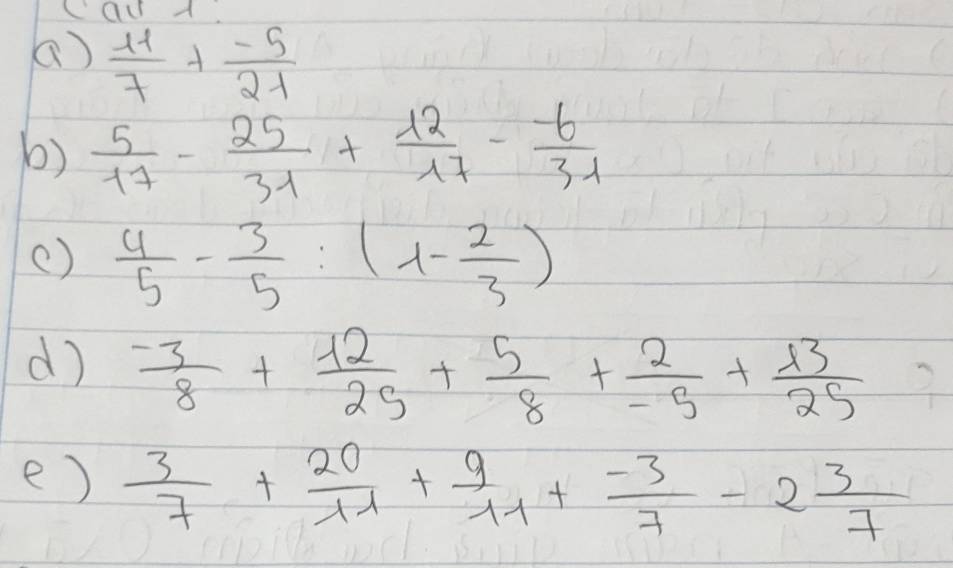 Câu 1.
a) 11/7 + -5/21
b) 5/17 - 25/31 + 12/17 - -6/31
c) 4/5 - 3/5 : (1 - 2/3)
d) -3/8 + 12/25 + 5/8 + 2/-5 + 13/25
e) 3/7 + 20/11 + 9/11 + -3/7 - 2 3/7